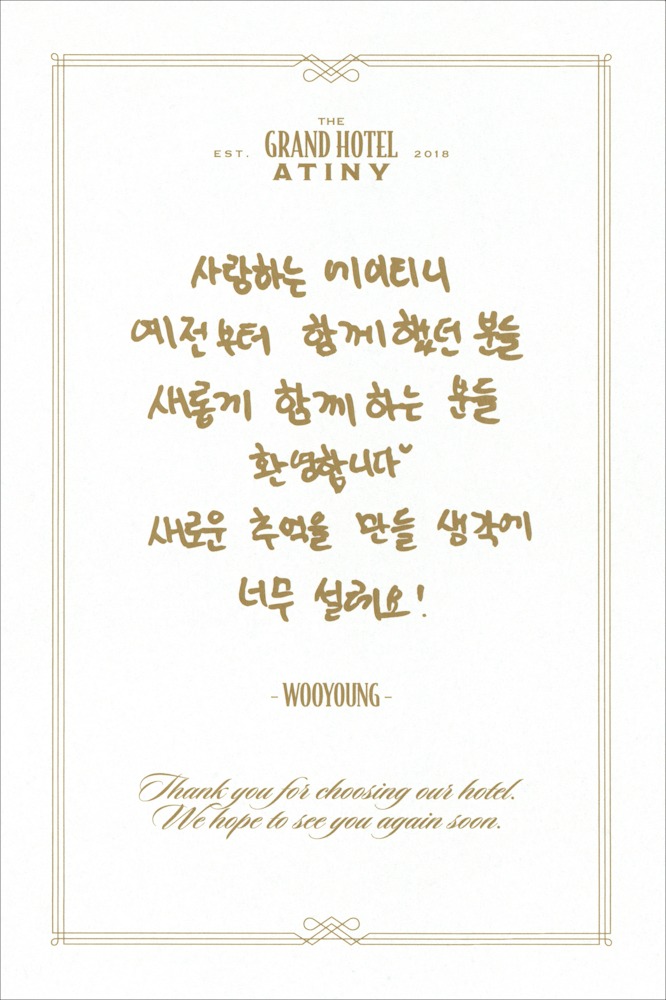 THE
EST. GRAND HOTEL 2018
ATINY
사랑하는 에이티니
예전부터 함께했던 분들
새롭게 함께하는 분들
환영합니다
새로운 추억을 만들 생각에
너무 설레요!
- WOOYOUNG -
Thank you for choosing our hotel.
We hope to see you again soon.